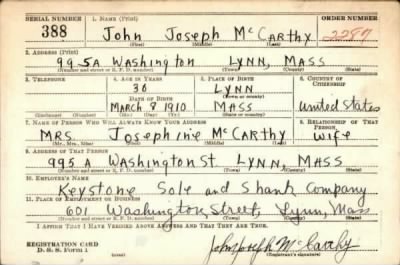 SERIAL NUMBER 1. NAME (Print) ORDER NUMBER
388 John Joseph McCarthy 2287
(First) (Middle) (Last)
2. ADDRESS (Print)
995A Washington Lynn, Mass
(Number and street or R. F. D. number) (Town) (County) (State)
3. TELEPHONE 4. AGE IN YEARS 5. PLACE OF BIRTH 6. COUNTRY OF CITIZENSHIP
30 Lynn
DATE OF BIRTH (Town or county)
March 8 1910 Mass United States
(Exchange) (Number) (Mo.) (Day) (Yr.) (State or country)
7. NAME OF PERSON WHO WILL ALWAYS KNOW YOUR ADDRESS 8. RELATIONSHIP OF THAT PERSON
Mrs. Josephine McCarthy Wife
(Mr., Mrs., Miss) (First) (Middle) (Last)
9. ADDRESS OF THAT PERSON
995 A Washington St. Lynn, Mass
(Number and street or R. F. D. number) (Town) (County) (State)
10. EMPLOYER'S NAME
Keystone Sole and Shank Company
11. PLACE OF EMPLOYMENT OR BUSINESS
601 Washington Street, Lynn, Mass
(Number and street or R. F. D. number) (Town) (County) (State)
I AFFIRM THAT I HAVE VERIFIED ABOVE ANSWERS AND THAT THEY ARE TRUE.
REGISTRATION CARD
D. S. S. Form 1
John Joseph McCarthy
(Registrant's signature)